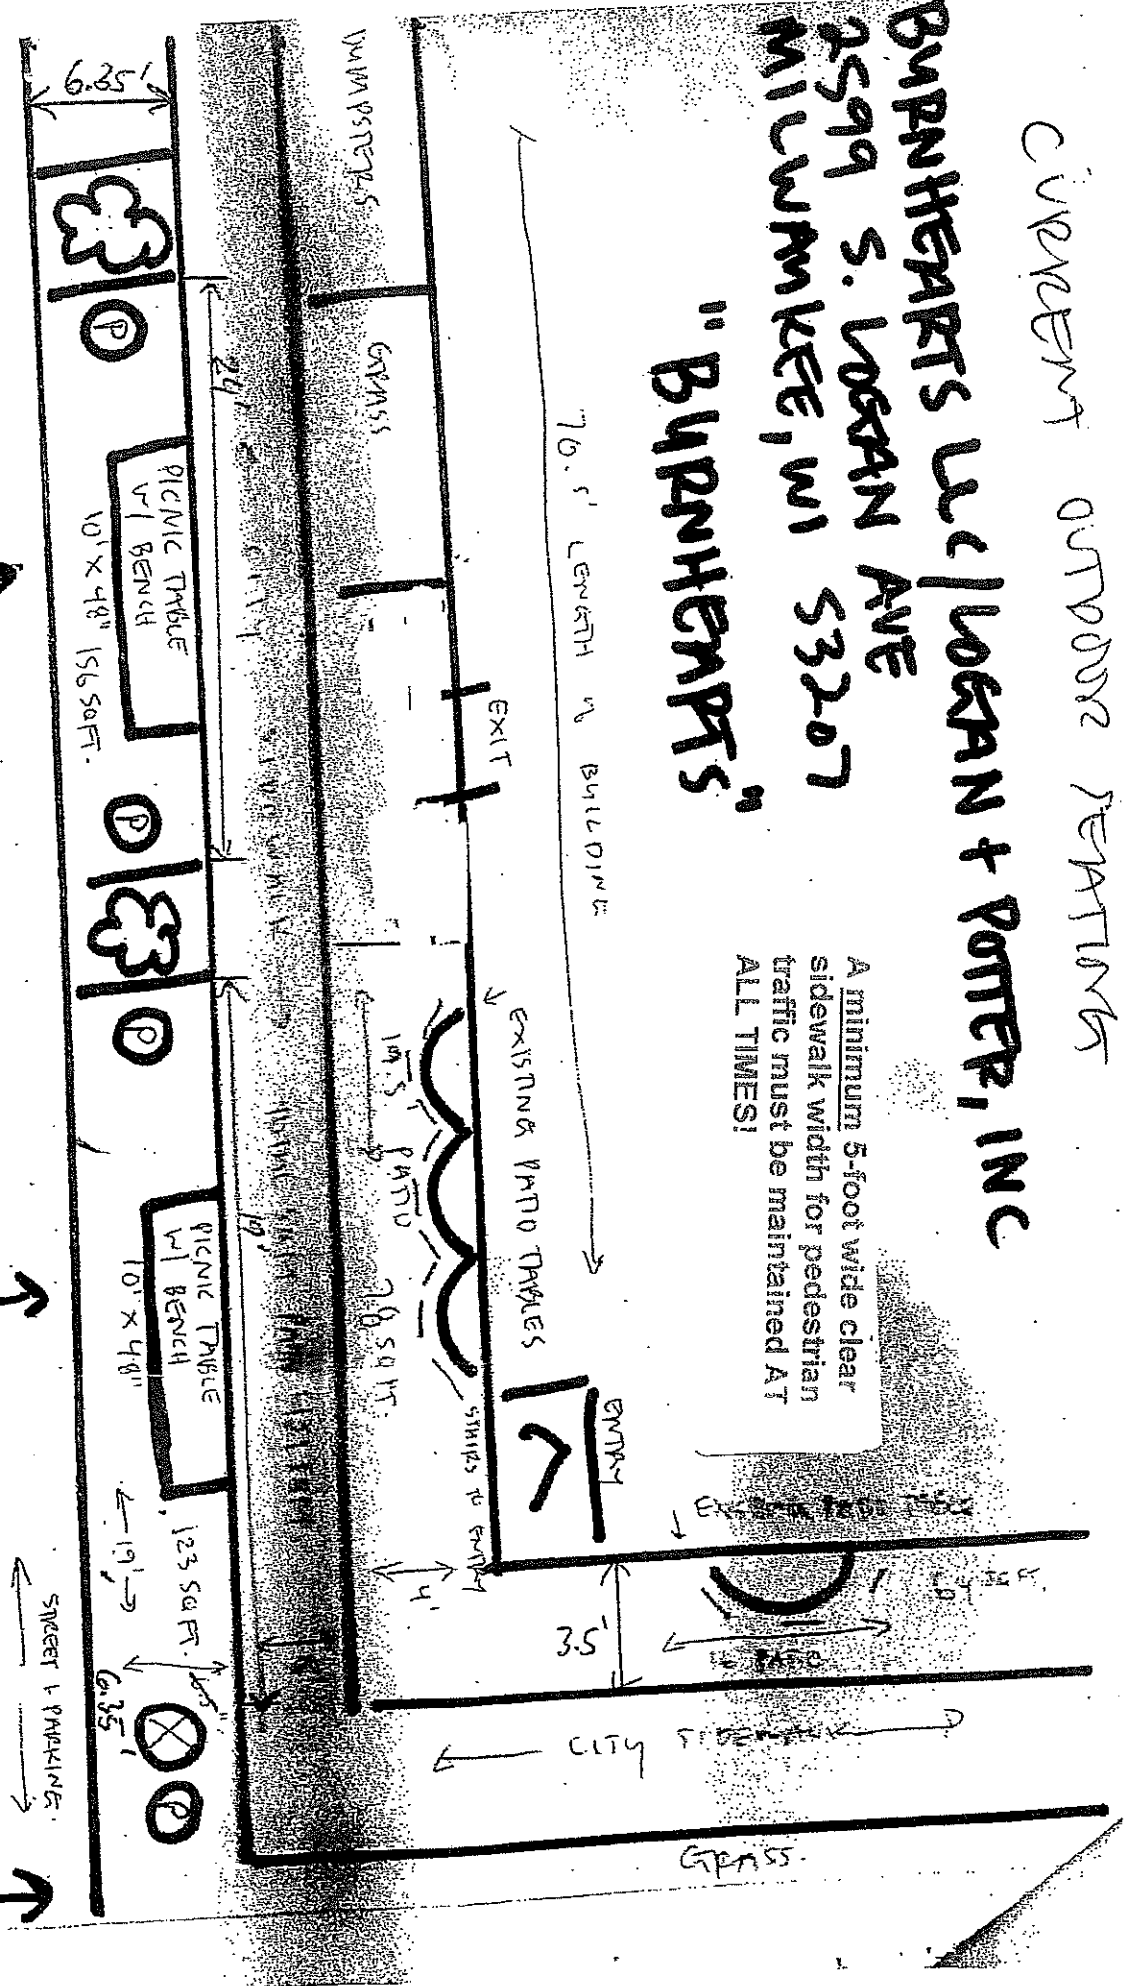 CURRENT OUTDOOR SEATING
BURNHEARTS LLC/LOGAN + POTTER, INC
2599 S. LOGAN AVE
MILWAUKEE, WI 53207
"BURNHEARTS"
A minimum 5-foot wide clear
sidewalk width for pedestrian
traffic must be maintained AT
ALL TIMES!
76.5' LENGTH OF BUILDING
ENTRY
EXIT
EXISTING PATIO TABLES
STAIRS TO ENTRY
DUMPSTERS
GRASS
19.5' PATIO
78 SQ FT.
4'
3.5'
PATIO
CITY SIDEWALK
GRASS.
24'
19'
6.35'
P
PICNIC TABLE
W/ BENCH
10' X 48"
156 SQFT.
P
P
PICNIC TABLE
W/ BENCH
10' X 48"
123 SQFT.
19'
6.35'
X
P
STREET + PARKING